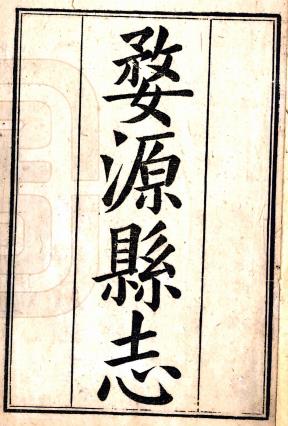 婺源縣志